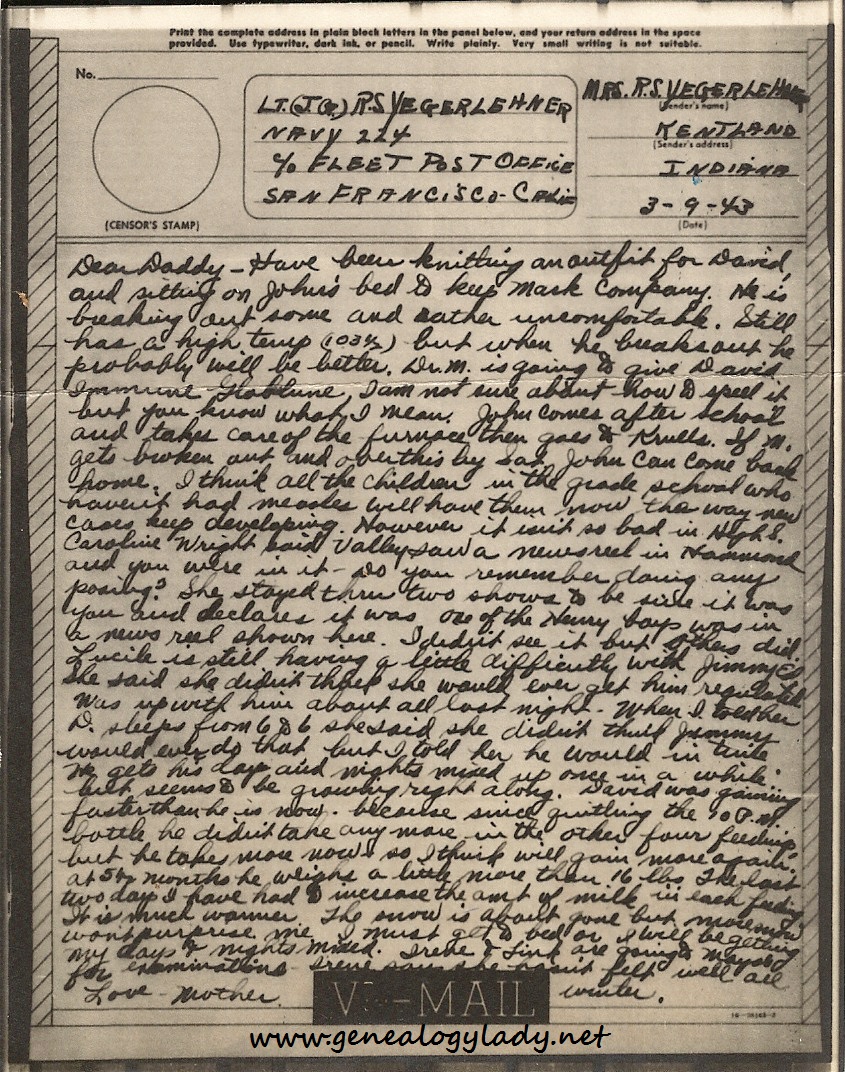 Print the complete address in plain block letters in the panel below, and your return address in the space
provided. Use typewriter, dark ink, or pencil. Write plainly. Very small writing is not suitable.
No.
(CENSOR'S STAMP)
LT.(JG) R.S. YEGERLEHNER
NAVY 224
c/o FLEET POST OFFICE
SAN FRANCISCO - CALIF
MRS. R.S. YEGERLEHNER
(Sender's name)
KENTLAND
(Sender's address)
INDIANA
3-9-43
(Date)
Dear Daddy - Have been knitting an outfit for David,
and sitting on John's bed to keep Mark Company. He is
breaking out some and rather uncomfortable. Still
has a high temp (103½) but when he breaks out he
probably will be better. Dr. M. is going to give David
Immune Globline, I am not sure about how to spell it
but you know what I mean. John comes after school
and takes care of the furnace then goes to Krulls. If M.
gets broken out and over this by Sat. John can come back
home. I think all the children in the grade school who
haven't had measles will have them now the way new
cases keep developing. However it isn't so bad in High S.
Caroline Wright said Valley saw a newsreel in Hammond
and you were in it - Do you remember doing any
posing? She stayed thru two shows to be sure it was
you and declares it was. One of the Henry boys was in
a news reel shown here. I didn't see it but others did.
Lucile is still having a little difficulty with Jimmy
She said she didn't think she would ever get him regulated
Was up with him about all last night. When I told her
D. sleeps from 6 to 6 she said she didn't think Jimmy
would ever do that but I told her he would in time
He gets his days and nights mixed up once in a while
but seems to be growing right along. David was gaining
faster than he is now - because since quitting the 10 P.M.
bottle he didn't take any more in the other four feedings
but he takes more now so I think will gain more again.
at 5½ months he weighs a little more than 16 lbs The last
two days I have had to increase the amt of milk in each feeding
It is much warmer. The snow is about gone but more
won't surprise me. I must get to bed or I will be getting
my days & nights mixed. Irene & Tink are going to Mayos
for examinations - Irene says she hasn't felt well all
Love - Mother winter.
V···—MAIL
16-28143-3
www.genealogylady.net